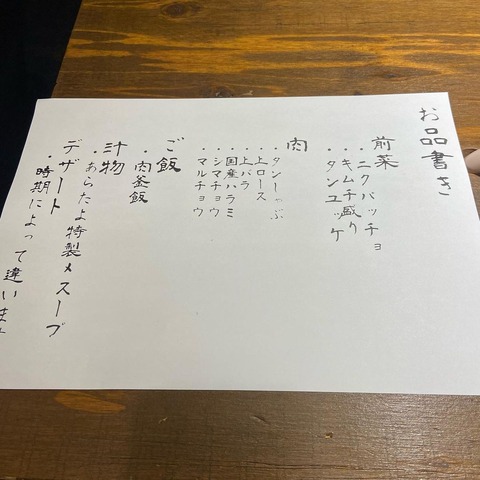 お品書き
前菜
・ニクパッチョ
・キムチ盛り
・タンユッケ
肉
・タンしゃぶ
・上ロース
・上バラ
・国産ハラミ
・シマチョウ
・マルチョウ
ご飯
・肉釜飯
汁物
・あらたよ特製〆スープ
デザート
・時期によって違いま